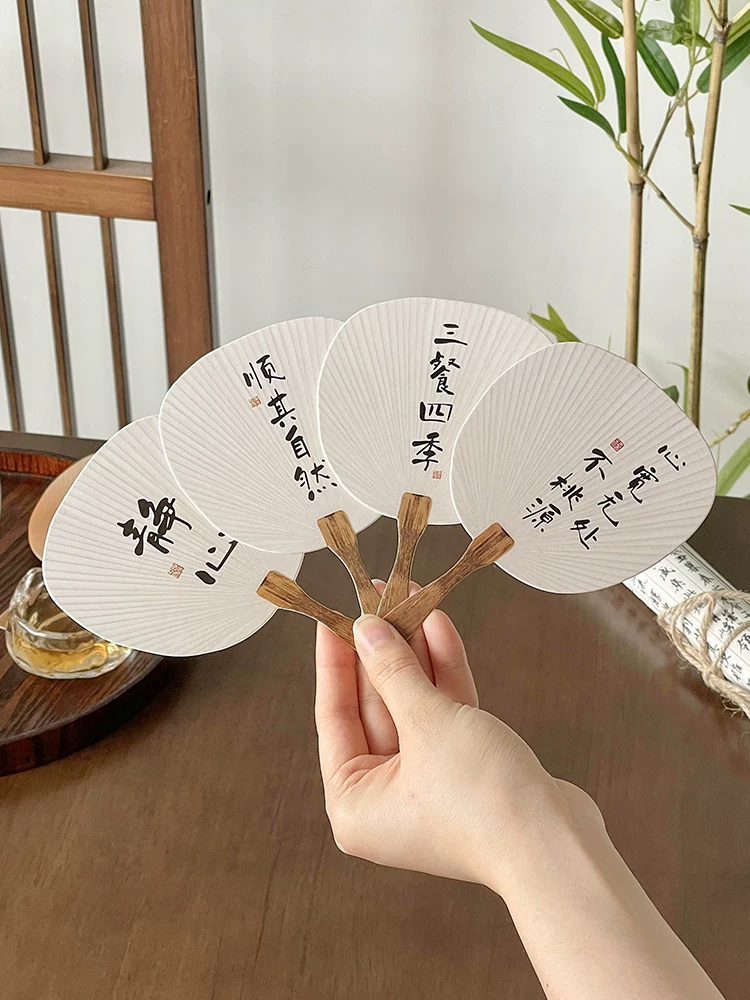 静心
顺其自然
三餐四季
心宽无处
不桃源